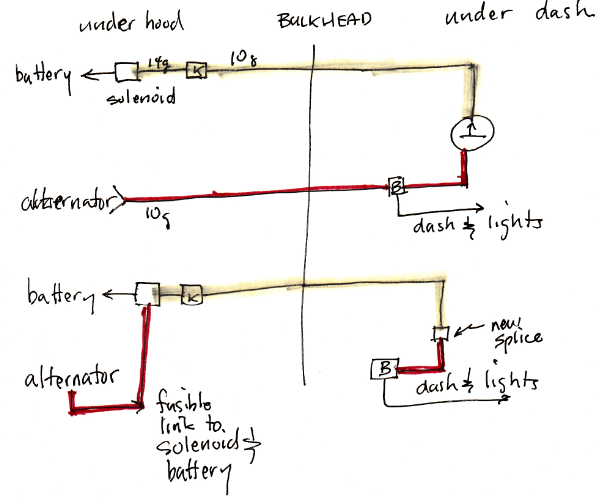 under hood
BULKHEAD
under dash
14g
10g
battery
K
solenoid
alternator
B
10g
dash & lights
battery
K
new
splice
alternator
B
dash & lights
fusible
link to
solenoid &
battery